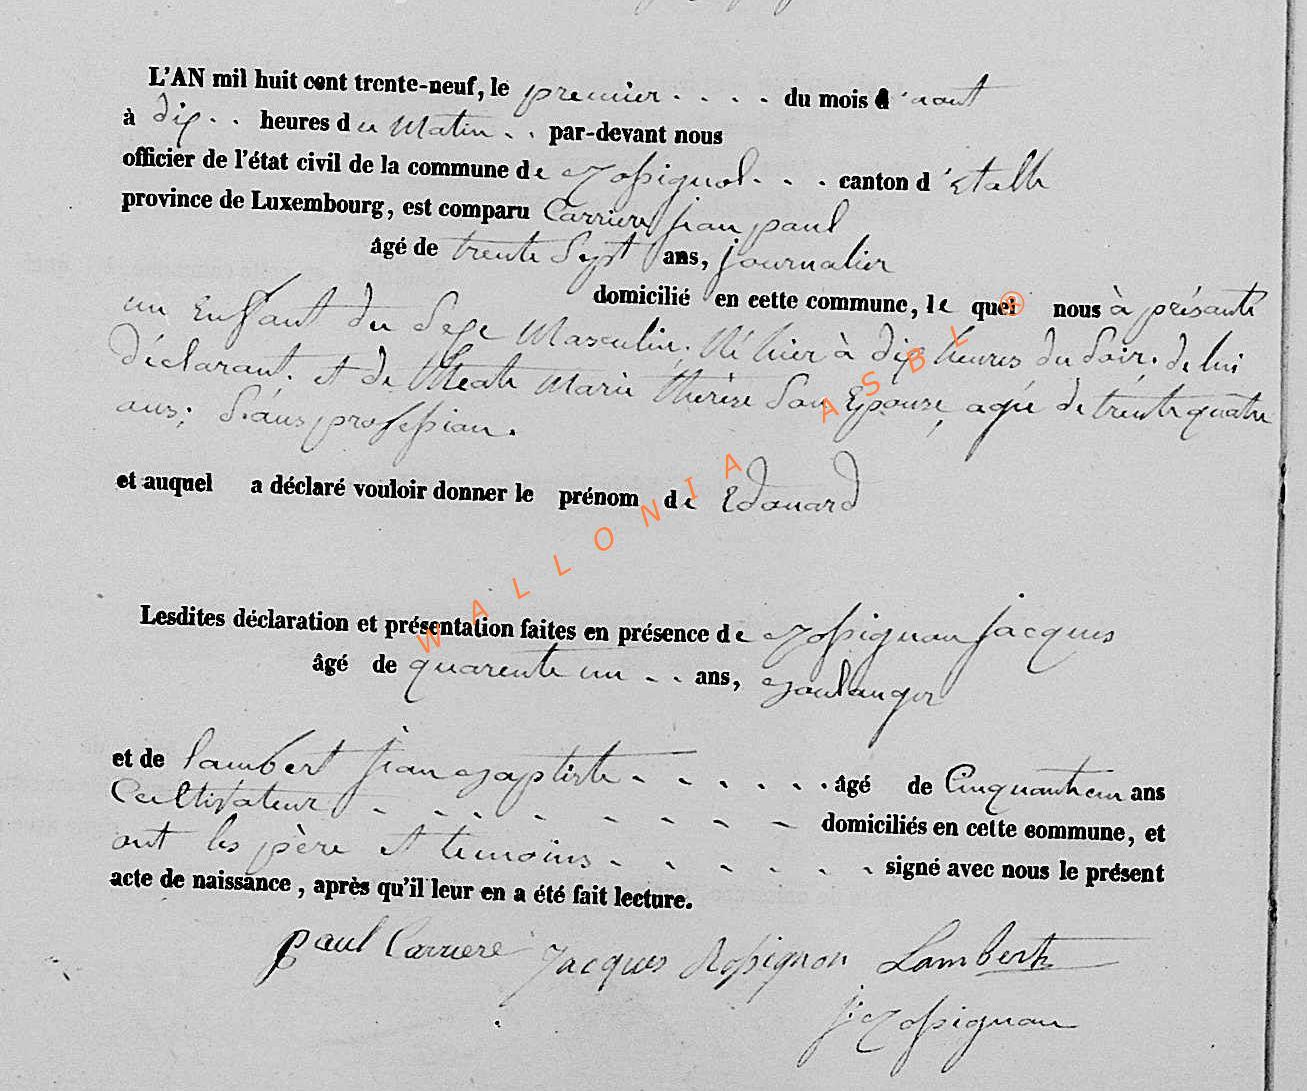 L'AN mil huit cent trente-neuf, le premier . . . . du mois d'aout
à dix . . heures du Matin . . par-devant nous
officier de l'état civil de la commune de Rossignol . . . canton d'Etalle
province de Luxembourg, est comparu Carriere jean paul
âgé de trente Sept ans, journalier
domicilié en cette commune, le quel nous à présanté
un Enfant du Sexe Masculin; Né hier à dix heures du Soir. de lui
déclarant; et de Marie thèrèse Son Epouse, agée de trente quatre
ans; Sans profession.
et auquel a déclaré vouloir donner le prénom de Edouard
Lesdites déclaration et présentation faites en présence de Rossignon jacques
âgé de quarente un . . ans, Boulanger
et de Lambert jean Baptiste . . . . . . âgé de Cinquante un ans
Cultivateur . . . . . . . . . domiciliés en cette commune, et
ont les père et temoins . . . . . . signé avec nous le présent
acte de naissance, après qu'il leur en a été fait lecture.
paul Carriere Jacques Rossignon Lambert
j: Rossignon
WALLONIA ASBL ®